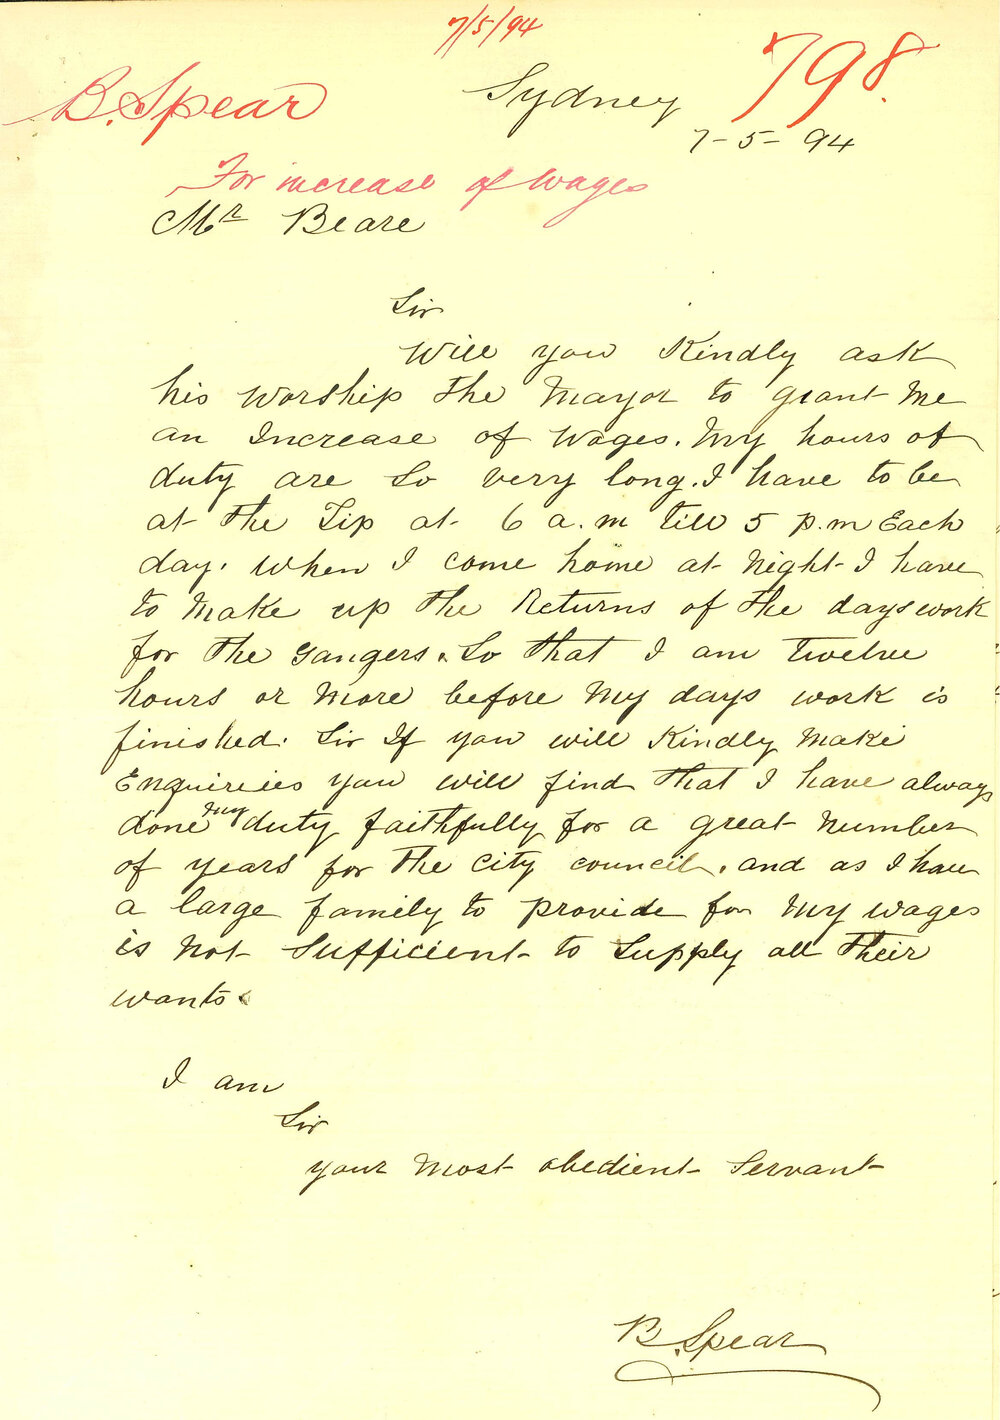 7/5/94
798.
B. Spear
Sydney
7-5-94
For increase of wages
Mr Beare
Sir
Will you Kindly ask
his Worship The Mayor to grant Me
an Increase of Wages. My hours of
duty are So very long. I have to be
at The Tip at 6 a.m till 5 p.m Each
day. When I come home at Night I have
to Make up The Returns of The days work
for The Gangers. So That I am Twelve
hours or More before My days work is
finished. Sir If you will Kindly Make
Enquireies you will find That I have always
done my duty faithfully for a great Number
of years for The City Council. and as I have
a large family to provide for My wages
is Not Sufficient to Supply all Their
wants.
I am
Sir
your Most obedient Servant
B. Spear